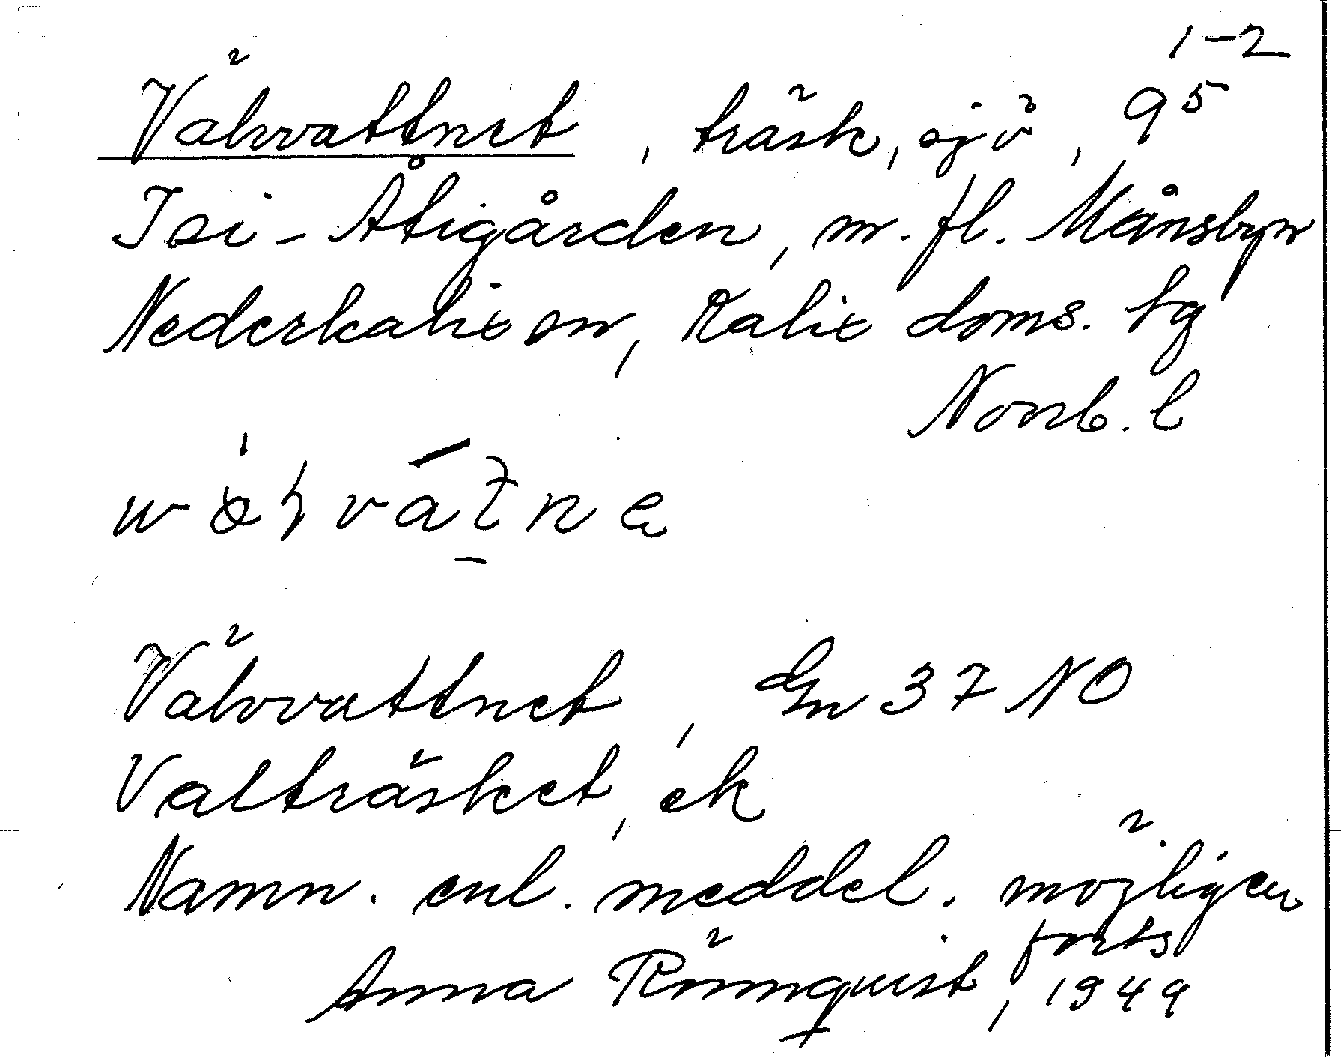 1-2
Välvvattnet, träsk, sjö, 9⁵
Isi-Åtigården, m. fl. Månsbyn
Nederkalix sn, Kalix doms. tg
Norrb. l
Välvvattnet, Gn 37 NO
Valträsket, ek
Namn. enl. meddel. möjligen
forts
Anna Rönnquist, 1949